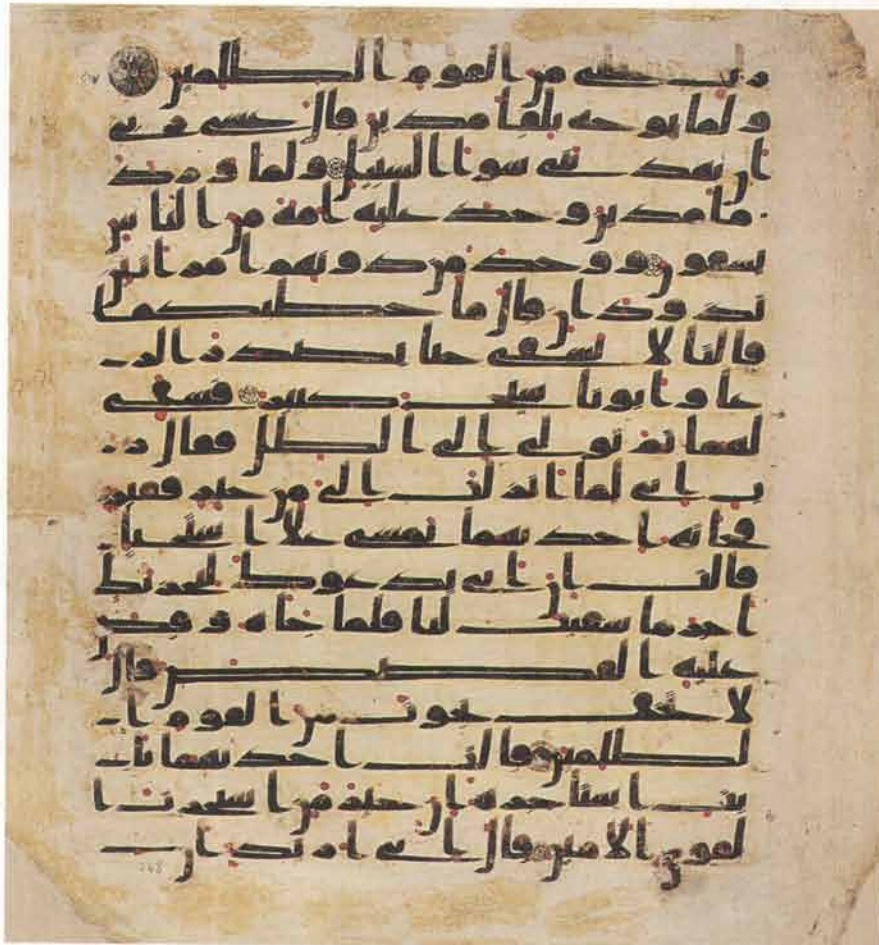 رب نجني من القوم الظلمين
ولما توجه تلقا مدين قال عسى ربي
ان يهديني سوا السبيل ولما ورد
ما مدين وجد عليه امة من الناس
يسقون ووجد من دونهم امراتين
تذودان قال ما خطبكما
قالتا لا نسقي حتى يصدر الر
عا وابونا شيخ كبير فسقى
لهما ثم تولى الى الظل فقال ر
ب اني لما انزلت الي من خير فقير
فجاته احديهما تمشي على استحيا
قالت ان ابي يدعوك ليجزيك
اجر ما سقيت لنا فلما جاه وقص
عليه القصص قال
لا تخف نجوت من القوم ا
لظلمين قالت احديهما يا
بت استاجره ان خير من استجرت ا
لقوي الامين قال اني اريد ان